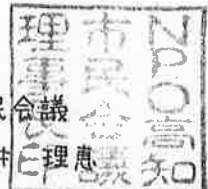 NPO高知
市民会議
理事長印
会議
理恵